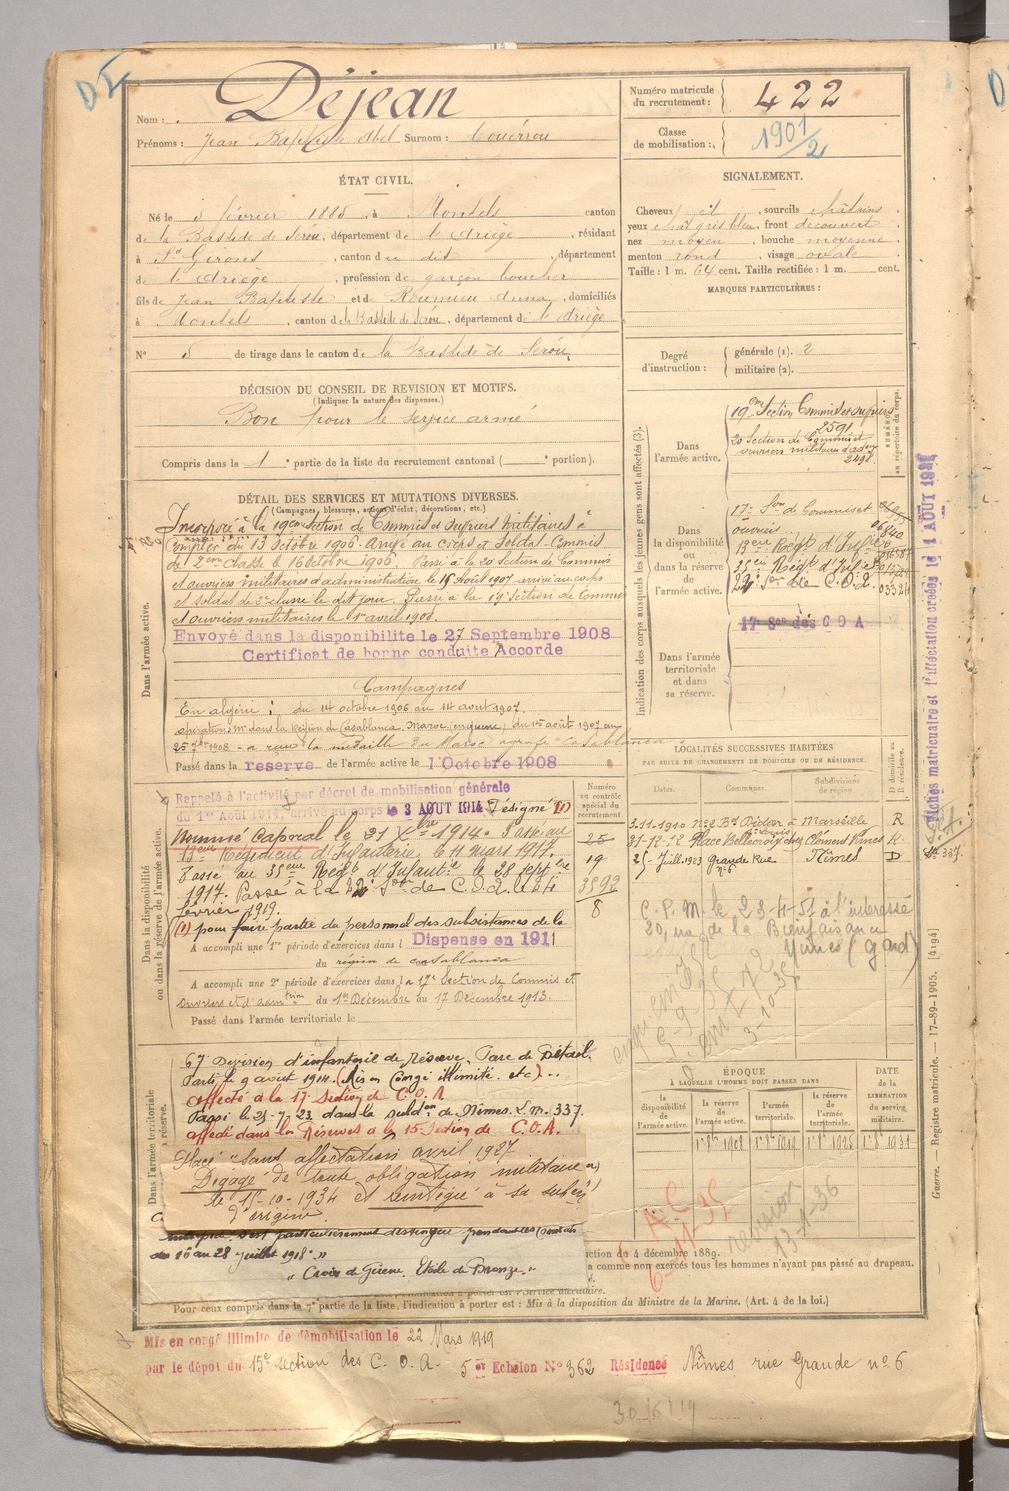 Nom : Déjean
Prénoms : Jean Baptiste Abel Surnom : Couérrou
Numéro matricule du recrutement : 422
Classe de mobilisation : 1901/2
ÉTAT CIVIL.
Né le 5 février 1885, à Montels canton
de la Bastide de Sérou, département de l'Ariège, résidant
à St Girons, canton du dit, département
de l'Ariège, profession de garçon boucher
fils de Jean Baptiste et de Roumieu Anna, domiciliés
à Montels, canton de la Bastide de Sérou, département de l'Ariège
N° 5 de tirage dans le canton de la Bastide de Sérou
SIGNALEMENT.
Cheveux et, sourcils châtains
yeux chât gris bleu, front découvert
nez moyen, bouche moyenne
menton rond, visage ovale
Taille : 1 m. 64 cent. Taille rectifiée : 1 m. cent.
MARQUES PARTICULIÈRES :
Degré d'instruction : générale (1). 2
militaire (2).
DÉCISION DU CONSEIL DE REVISION ET MOTIFS.
(Indiquer la nature des dispenses.)
Bon pour le service armé
Compris dans la 1e partie de la liste du recrutement cantonal ( e portion).
DÉTAIL DES SERVICES ET MUTATIONS DIVERSES.
(Campagnes, blessures, actions d'éclat, décorations, etc.)
Dans l'armée active.
Incorporé à la 19eme section de Commis et ouvriers militaires à
compter du 13 octobre 1906. Arrivé au corps et soldat commis
de 2eme classe le 16 octobre 1906. Passé à la 20 section de Commis
et ouvriers militaires d'administration le 15 Août 1907 arrivé au corps
et soldat de 2e classe le dit jour. Passé à la 19e section de Commis
et ouvriers militaires le 1er avril 1908.
Envoyé dans la disponibilite le 27 Septembre 1908
Certificat de bonne conduite Accorde
Campagnes
En algérie : du 14 octobre 1906 au 14 aout 1907.
opérations Mres dans la région de Casablanca. Maroc (en guerre) du 15 août 1907 au
25 7bre 1908 - a reçu la médaille du Maroc agrafe "Casablanca"
Passé dans la reserve de l'armée active le 1 Octobre 1908
Indication des corps auxquels les jeunes gens sont affectés (3).
NUMÉRO au répertoire du corps.
Dans l'armée active.
19me Section Commis et ouvriers
2591
20 Section de Commis et
ouvriers militaires d'adon
2490
Dans la disponibilité ou dans la réserve de l'armée active.
17e Son de Commis et
ouvriers
13eme Régt d'Infrie
35eme Régt d'Infie
22e Son de C.O.A.
17 Son des COA
Dans l'armée territoriale et dans sa réserve.
Fiches matricuaire et d'affectation créées le 1 AOUT 193
Dans la disponibilité ou dans la réserve de l'armée active.
Rappelé à l'activité par décret de mobilisation générale
du 1er Août 1914, arrivé au corps le 3 AOUT 1914 Désigné (1)
Nommé Caporal le 21 Xbre 1914. Passé au
13eme Régiment d'Infanterie, le 11 mars 1917.
Passé au 35eme Régt d'Infantie le 28 septbre
1917. Passé à la 22e Son de C.O.A. le
février 1919.
(1) pour faire partie du personnel des subsistances de la
A accompli une 1re période d'exercices dans l Dispense en 1911
du région de Casablanca
A accompli une 2e période d'exercices dans la 17e Section de Commis et
ouvriers et d'admtion du 1er Décembre au 17 Décembre 1913.
Passé dans l'armée territoriale le
Numéro au contrôle spécial du recrutement.
25
19
3592
8
LOCALITÉS SUCCESSIVES HABITÉES
PAR SUITE DE CHANGEMENTS DE DOMICILE OU DE RÉSIDENCE.
Dates. Communes. Subdivisions de région. D domicile ou R résidence.
3-11-1910 no 2 Bd Didon à Marseille R
31-12-12 Place Bellecroix chez Clément Nimes R
25 Juill. 1923 Grande Rue no 6 Nîmes D
C.P.M. le 23-4-51 à l'intéressé
20, rue de la Bienfaisance
Nimes (gard)
3-10-35
67e Division d'infanterie de Réserve. Parc de Bétail.
Parti le 9 aout 1914. (Mis en Congé illimité. etc)...
affecté à la 17e section de C.O.A.
Passé le 25-7-23 dans la subdon de Nimes. L.m. 337.
affecté dans la Réserves à la 15 Section de C.O.A.
Placé "Sans affectation avril 1927
Dégagé de toute obligation militaire
le 15-10-1934 et réintégré à sa subon
d'origine
s'est particulièrement distingué pendant les combats
du 16 au 28 juillet 1918."
"Croix de Guerre. Etoile de Bronze."
Dans l'armée territoriale
ÉPOQUE
À LAQUELLE L'HOMME DOIT PASSER DANS
la disponibilité de l'armée active. la réserve de l'armée active. l'armée territoriale. la réserve de l'armée territoriale.
DATE de la LIBÉRATION du service militaire.
1er 8bre 1908 1er 8bre 1919 1er 8bre 1925 1er 8bre 1931
révision
13-1-36
ction du 4 décembre 1889.
a comme non exercés tous les hommes n'ayant pas passé au drapeau.
Pour ceux compris dans la 7e partie de la liste, l'indication à porter est : Mis à la disposition du Ministre de la Marine. (Art. 4 de la loi.)
Mis en congé illimité de démobilisation le 22 Mars 1919
par le dépot du 15e section des C.O.A. 5e Echelon N° 362 Résidence Nîmes rue Grande no 6
Guerre. — Registre matricule. — 17-89-1905. [4194]